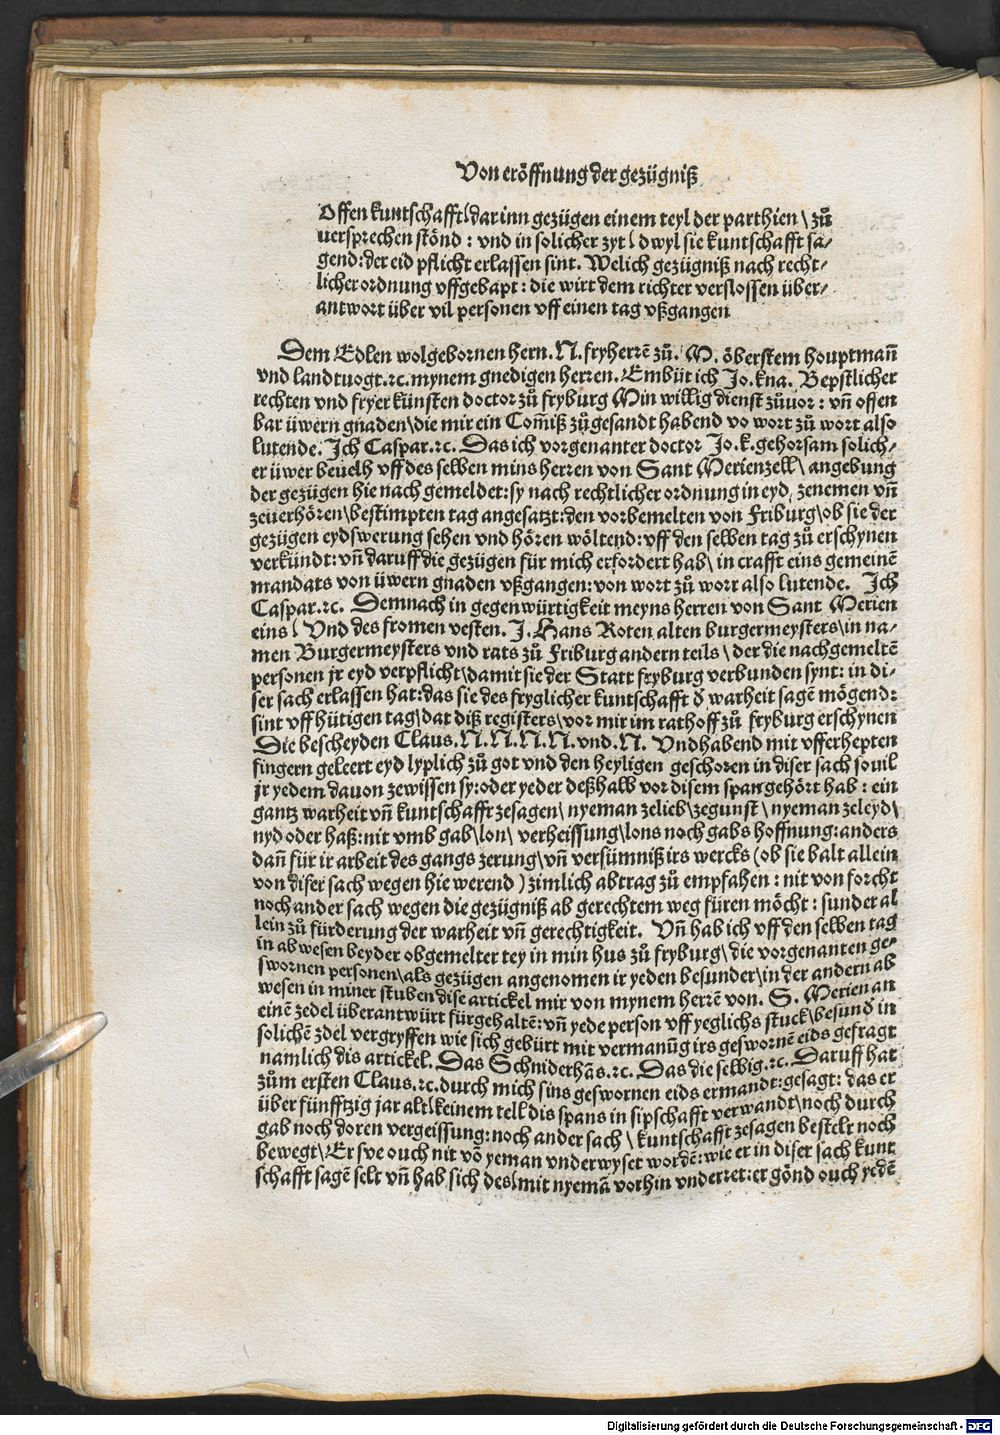 Von eröffnung der gezügniß
Offen kuntschafft/ dar inn gezügen einem teyl der parthien \ zuͦ
uersprechen stönd : vnd in solicher zyt / dwyl sie kuntschafft sa⸗
gend: der eid pflicht erlassen sint. Welich gezügniß nach recht⸗
licher ordnung vffgehapt : die wirt dem richter verslossen über⸗
antwort über vil personen vff einen tag vßgangen
Dem Edlen wolgebornen hern. N. fryherrē zuͦ. W. öberstem houptmañ
vnd landtuogt.ꝛc. mynem gnedigen herren. Embüt ich Jo. kna. Bepstlicher
rechten vnd fryer künsten doctor zuͦ fryburg Min willig dienst zuͦuor : vñ offen
bar üwern gnaden \ die mir ein Com̄iß zuͦgesandt habend vo wort zuͦ wort also
lutende. Ich Caspar.ꝛc. Das ich vorgenanter doctor Jo. k. gehorsam solich⸗
er üwer beuelh vff des selben mins herren von Sant Merienzell \ angebung
der gezügen hie nach gemeldet: sy nach rechtlicher ordnung in eyd zenemen vñ
zeuerhören \ bestimpten tag angesatzt: den vorbemelten von Friburg \ ob sie der
gezügen eydswerung sehen vnd hören wöltend: vff den selben tag zuͦ erschynen
verkündt: vñ daruff die gezügen für mich erfordert hab \ in crafft eins gemeinē
mandats von üwern gnaden vßgangen: von wort zuͦ worr also lutende. Ich
Caspar.ꝛc. Demnach in gegenwürtigkeit meyns herren von Sant Merien
eins / Vnd des fromen vesten. J. Hans Roten alten burgermeysters \ in na⸗
men Burgermeysters vnd rats zuͦ Friburg andern teils \ der die nachgemeltē
personen jr eyd verpflicht \ damit sie der Statt fryburg verbunden synt: in di⸗
ser sach erlassen hat: das sie des fryglicher kuntschafft ð warheit sagē mögend:
sint vff hütigen tag \ dat diß registers \ vor mir im rathoff zuͦ fryburg erschynen
Die bescheyden Claus. N. N. N. N. vnd. N. Vnd habend mit vfferhepten
fingern geleert eyd lyplich zuͦ got vnd den heyligen geschoren in diser sach souil
jr yedem dauon zewissen sy: oder yeder deßhalb vor disem span gehört hab : ein
gantz warheit vñ kuntschafft zesagen \ nyeman zelieb \ zegunst \ nyeman zeleyd \
nyd oder haß: nit vmb gab \ lon \ verheissung \ lons noch gabs hoffnung: anders
dañ für ir arbeit des gangs zerung \ vñ versümniß irs wercks (ob sie balt allein
von diser sach wegen hie werend) zimlich abtrag zuͦ empfahen : nit von forcht
noch ander sach wegen die gezügniß ab gerechtem weg füren möcht : sunder al
lein zuͦ fürderung der warheit vñ gerechtigkeit. Vñ hab ich vff den selben tag
in ab wesen beyder obgemelter tey in min hus zuͦ fryburg \ die vorgenanten ge⸗
swornen personen \ als gezügen angenomen ir yeden besunder \ in der andern ab
wesen in miner stuben dise artickel mir von mynem herrē von. S. Merien an
einē zedel überantwürt fürgehaltē: vñ yede person vff yeglichs stuck \ besund in
solichē zdel vergryffen wie sich gebürt mit vermanūg irs geswornē eids gefragt
namlich dis artickel. Das Schniderhās.ꝛc. Das die selbig.ꝛc. Daruff hat
zuͦm ersten Claus.ꝛc. durch mich sins geswornen eids ermandt: gesagt: das er
über fünfftzig jar alt / keinem tell dis spans in sipschafft verwandt \ noch durch
gab noch doren vergeissung: noch ander sach \ kuntschafft zesagen bestelt noch
bewegt \ Er sye ouch nit vō yeman vnderwyset wordē: wie er in diser sach kunt
schafft sagē selt vñ hab sich des / mit nyemā vorhin vnderret: er gönd ouch yedē
Digitalisierung gefördert durch die Deutsche Forschungsgemeinschaft - DFG